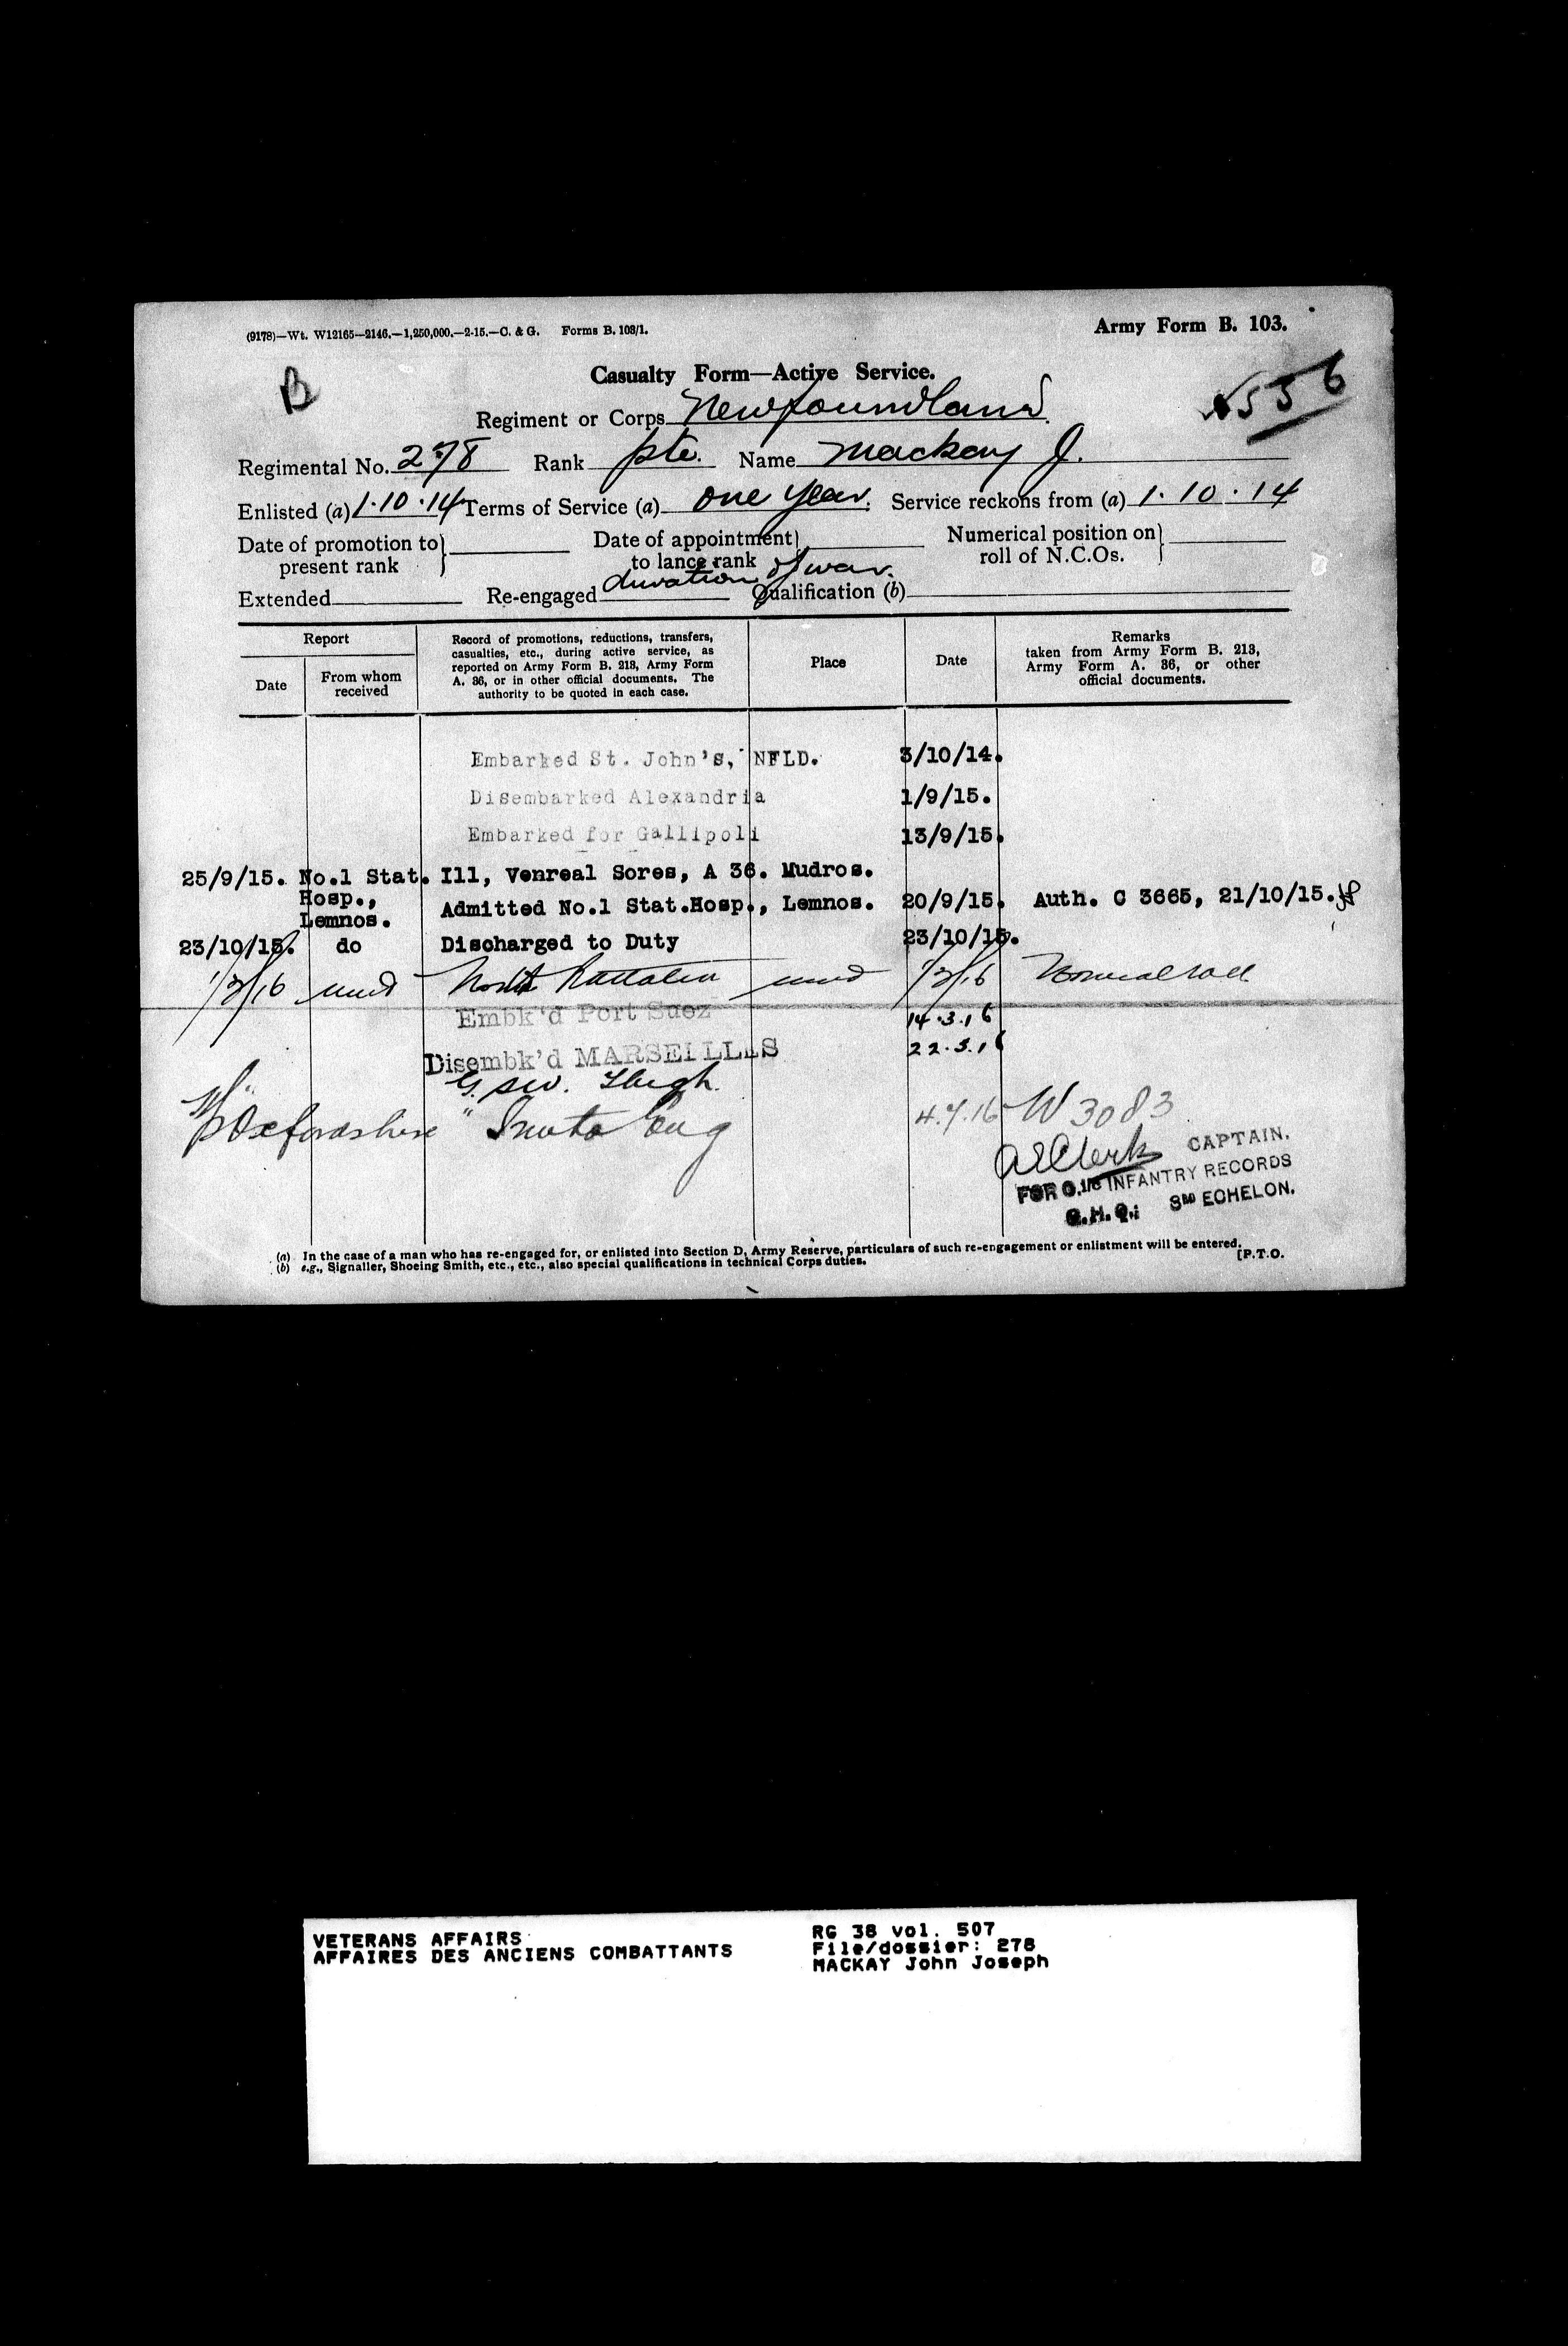 (9178)—Wt. W12165—2146.—1,250,000.—2-15.—C. & G. Forms B. 103/1.
Army Form B. 103.
B
Casualty Form—Active Service.
556
Regiment or Corps Newfoundland
Regimental No. 278 Rank pte. Name Mackay J.
Enlisted (a) 1.10.14 Terms of Service (a) one year. Service reckons from (a) 1.10.14
Date of promotion to present rank
Date of appointment to lance rank
Numerical position on roll of N.C.Os.
Extended Re-engaged duration of war. Qualification (b)
Report
Date
From whom received
Record of promotions, reductions, transfers,
casualties, etc., during active service, as
reported on Army Form B. 213, Army Form
A. 36, or in other official documents. The
authority to be quoted in each case.
Place
Date
Remarks
taken from Army Form B. 213,
Army Form A. 36, or other
official documents.
Embarked St. John's, NFLD. 3/10/14.
Disembarked Alexandria 1/9/15.
Embarked for Gallipoli 13/9/15.
25/9/15. No.1 Stat. Ill, Venreal Sores, A 36. Mudros.
Hosp., Admitted No.1 Stat.Hosp., Lemnos. 20/9/15. Auth. C 3665, 21/10/15.
Lemnos.
23/10/15. do Discharged to Duty 23/10/15.
1/3/16 Battalion 1/3/16 Nominal roll
Embk'd Port Suez 14.3.16
Disembk'd MARSEILLES 22.3.16
G.S.W. Thigh.
Oxfordshire " Inv to Eng 4.7.16 W 3083
CAPTAIN.
FOR O. I/C INFANTRY RECORDS
G.H.Q. 3RD ECHELON.
(a) In the case of a man who has re-engaged for, or enlisted into Section D, Army Reserve, particulars of such re-engagement or enlistment will be entered.
(b) e.g., Signaller, Shoeing Smith, etc., etc., also special qualifications in technical Corps duties.
[P.T.O.
VETERANS AFFAIRS
AFFAIRES DES ANCIENS COMBATTANTS
RG 38 vol. 507
File/dossier: 278
MACKAY John Joseph